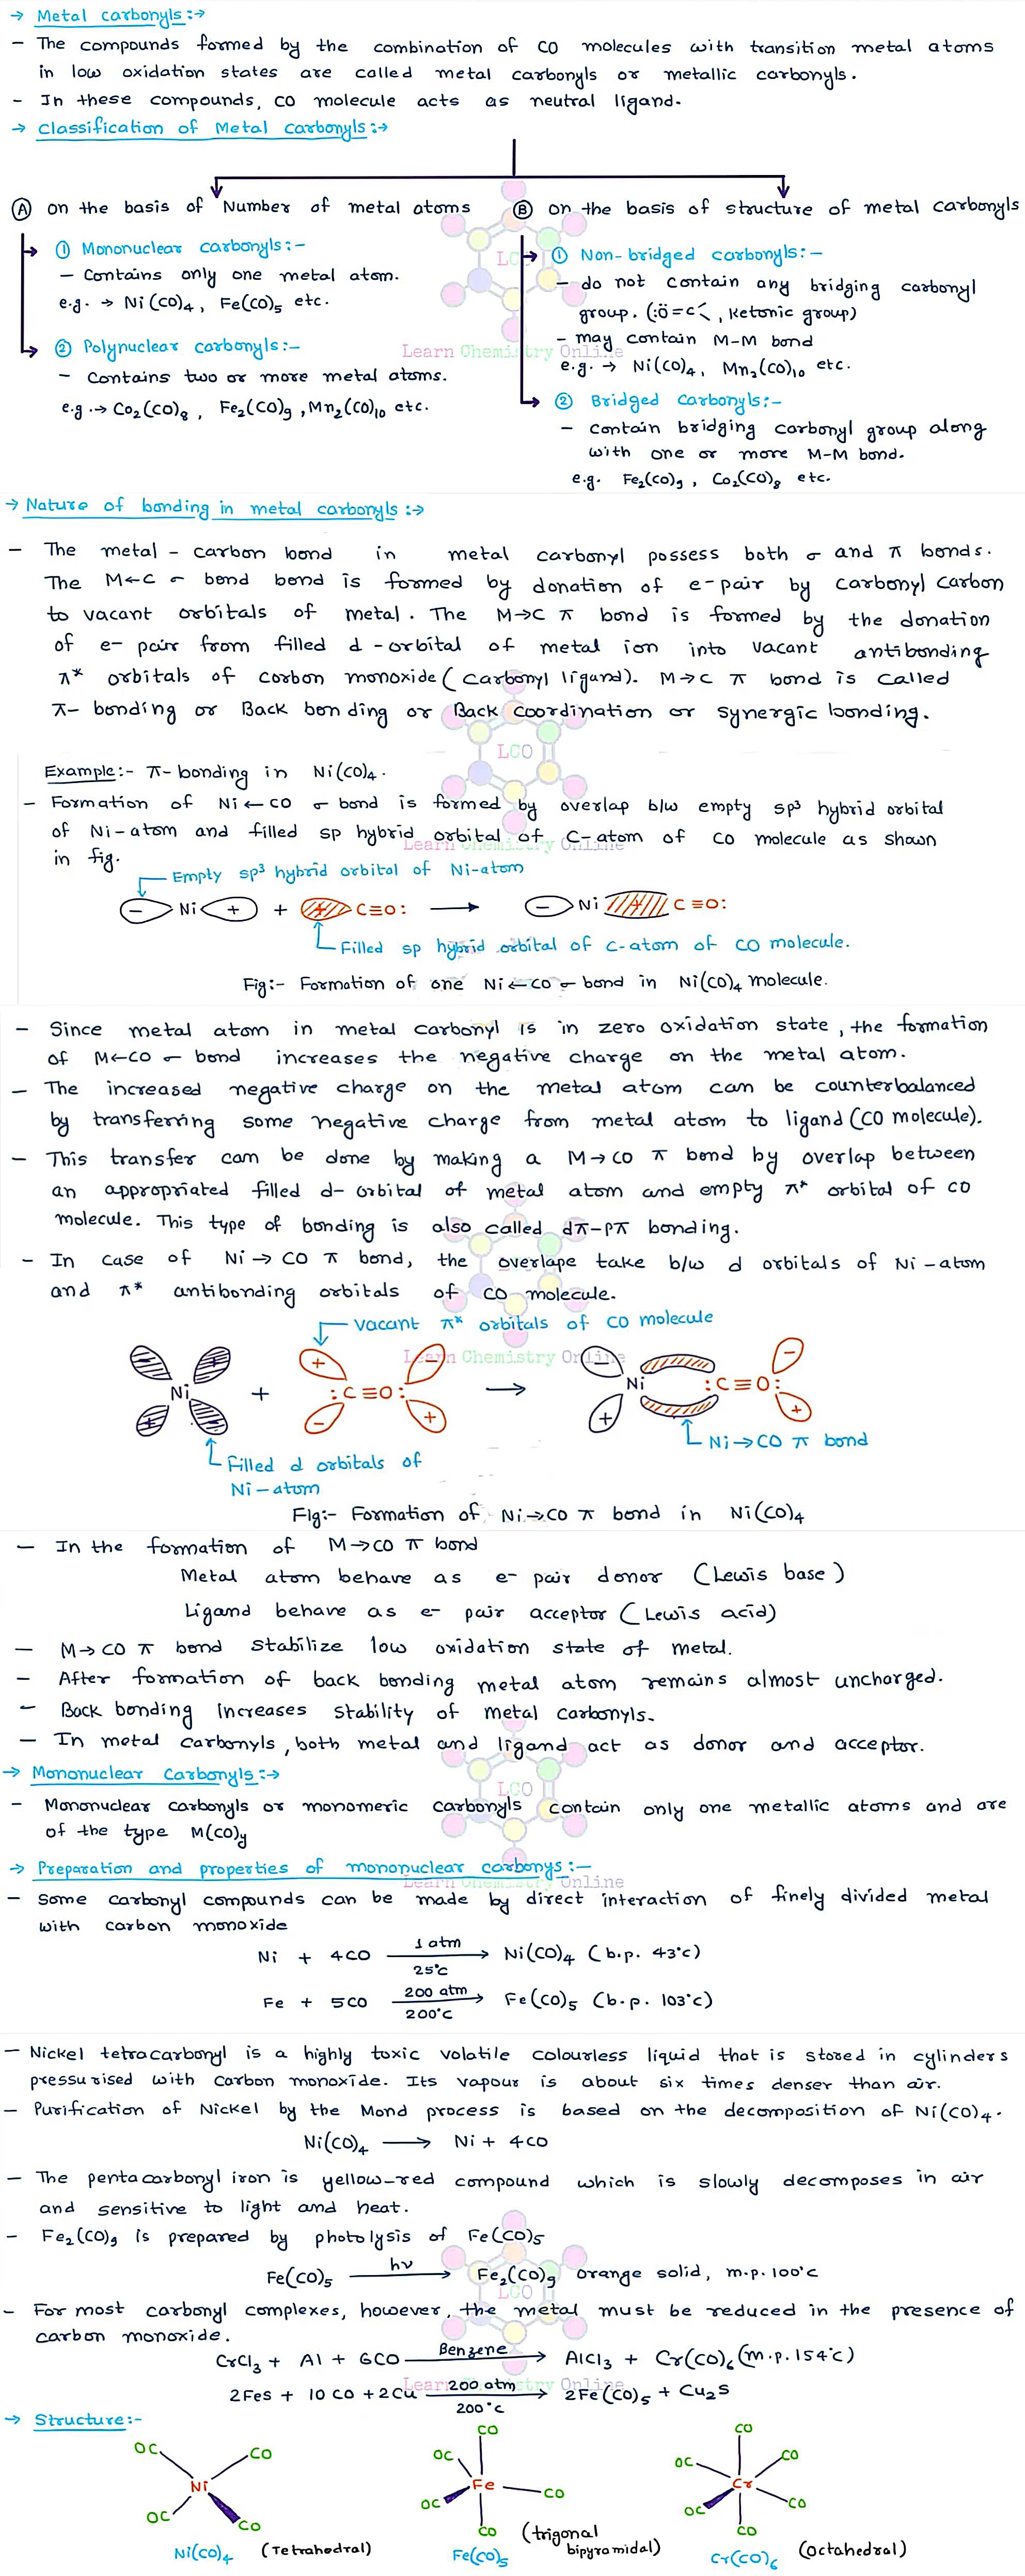 → Metal carbonyls:→
- The compounds formed by the combination of CO molecules with transition metal atoms
in low oxidation states are called metal carbonyls or metallic carbonyls.
- In these compounds, CO molecule acts as neutral ligand.
→ Classification of Metal carbonyls:→
Ⓐ on the basis of Number of metal atoms
① Mononuclear carbonyls:-
- Contains only one metal atom.
e.g. → Ni(CO)₄, Fe(CO)₅ etc.
② Polynuclear carbonyls:-
- Contains two or more metal atoms.
e.g → Co₂(CO)₈, Fe₂(CO)₉, Mn₂(CO)₁₀ etc.
Ⓑ on the basis of structure of metal carbonyls
① Non-bridged carbonyls:-
- do not contain any bridging carbonyl
group. (:Ö=C<, Ketonic group)
- may contain M-M bond
e.g. → Ni(CO)₄, Mn₂(CO)₁₀ etc.
② Bridged carbonyls:-
- contain bridging carbonyl group along
with one or more M-M bond.
e.g. Fe₂(CO)₉, Co₂(CO)₈ etc.
LCO
Learn Chemistry Online
→ Nature of bonding in metal carbonyls :→
- The metal - carbon bond in metal carbonyl possess both σ and π bonds.
The M←C σ bond bond is formed by donation of e-pair by carbonyl carbon
to vacant orbitals of metal. The M→C π bond is formed by the donation
of e- pair from filled d-orbital of metal ion into vacant antibonding
π* orbitals of corbon monoxide (carbonyl ligand). M→C π bond is called
π- bonding or Back bonding or Back coordination or synergic bonding.
LCO
Example:- π-bonding in Ni(CO)₄.
- Formation of Ni←CO σ bond is formed by overlap b/w empty sp³ hybrid orbital
of Ni-atom and filled sp hybrid orbital of C-atom of CO molecule as shown
in fig.
Learn Chemistry Online
Empty sp³ hybrid orbital of Ni-atom
- Ni + + + C≡O: → - Ni + C≡O:
Filled sp hybrid orbital of C-atom of CO molecule.
Fig:- Formation of one Ni←CO σ bond in Ni(CO)₄ molecule.
- Since metal atom in metal carbonyl is in zero oxidation state, the formation
of M←CO σ bond increases the negative charge on the metal atom.
- The increased negative charge on the metal atom can be counterbalanced
by transferring some negative charge from metal atom to ligand (CO molecule).
- This transfer can be done by making a M→CO π bond by overlap between
an appropriated filled d- orbital of metal atom and empty π* orbital of CO
molecule. This type of bonding is also called dπ-pπ bonding.
- In case of Ni→CO π bond, the overlape take b/w d orbitals of Ni-atom
and π* antibonding orbitals of CO molecule.
vacant π* orbitals of CO molecule
Learn Chemistry Online
- + - -
Ni + :C≡O: → Ni :C≡O:
+ - + + +
Ni→CO π bond
Filled d orbitals of
Ni-atom
Fig:- Formation of Ni→CO π bond in Ni(CO)₄
- In the formation of M→CO π bond
Metal atom behave as e- pair donor (Lewis base)
Ligand behave as e- pair acceptor (Lewis acid)
- M→CO π bond stabilize low oxidation state of metal.
- After formation of back bonding metal atom remains almost uncharged.
- Back bonding increases stability of metal carbonyls.
- In metal carbonyls, both metal and ligand act as donor and acceptor.
→ Mononuclear Carbonyls:→
LCO
- Mononuclear carbonyls or monomeric carbonyls contain only one metallic atoms and are
of the type M(CO)y
→ Preparation and properties of mononuclear carbonys:-
Learn Chemistry Online
- Some carbonyl compounds can be made by direct interaction of finely divided metal
with carbon monoxide
Ni + 4CO 1 atm 25°C → Ni(CO)₄ (b.p. 43°C)
Fe + 5CO 200 atm 200°C → Fe(CO)₅ (b.p. 103°C)
- Nickel tetracarbonyl is a highly toxic volatile colourless liquid that is stored in cylinders
pressurised with carbon monoxide. Its vapour is about six times denser than air.
- Purification of Nickel by the Mond process is based on the decomposition of Ni(CO)₄.
Ni(CO)₄ → Ni + 4CO
- The pentacarbonyl iron is yellow-red compound which is slowly decomposes in air
and sensitive to light and heat.
- Fe₂(CO)₉ is prepared by photolysis of Fe(CO)₅
Fe(CO)₅ hν → Fe₂(CO)₉ orange solid, m.p. 100°C
LCO
- For most carbonyl complexes, however, the metal must be reduced in the presence of
carbon monoxide.
CrCl₃ + Al + 6CO Benzene → AlCl₃ + Cr(CO)₆ (m.p. 154°C)
Learn Chemistry Online
2FeS + 10 CO + 2Cu 200 atm 200°C → 2Fe(CO)₅ + Cu₂S
→ Structure:-
OC CO
Ni
OC CO
Ni(CO)₄ (Tetrahedral)
CO
OC
Fe
OC CO
CO
Fe(CO)₅ (trigonal
bipyramidal)
CO
OC CO
Cr
OC CO
CO
Cr(CO)₆ (octahedral)